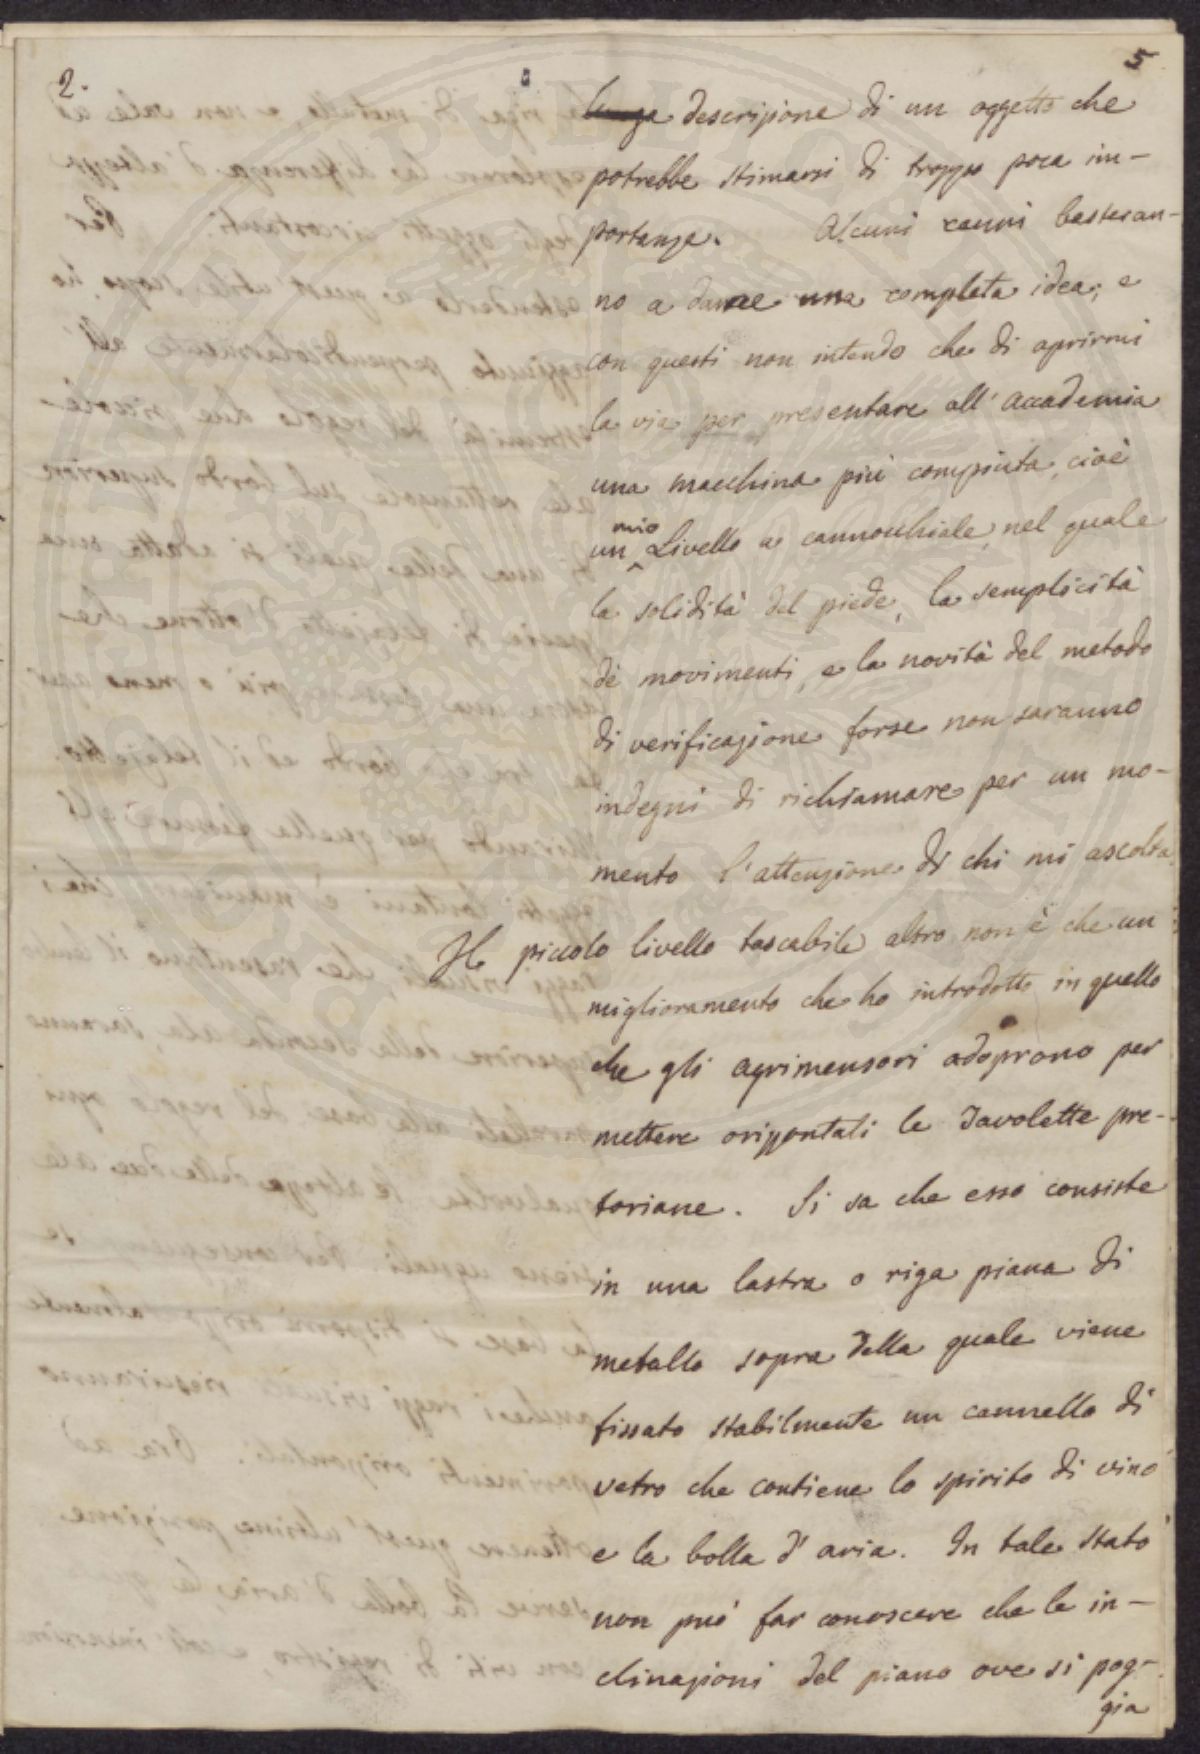 2.
5
lunga descrizione di un oggetto che
potrebbe stimarsi di troppo poca im-
portanza. Alcuni cenni basteran-
no a darne una completa idea, e
con questi non intendo che di aprirmi
la via per presentare all'Accademia
una macchina più compiuta, cioè
mio
un Livello a cannocchiale, nel quale
la solidità del piede, la semplicità
de' movimenti, e la novità del metodo
di verificazione forse non saranno
indegni di richiamare per un mo-
mento l'attenzione di chi mi ascolta.
Il piccolo livello tascabile altro non è che un
miglioramento che ho introdotto in quello
che gli agrimensori adoprano per
mettere orizzontali le Tavolette pre-
toriane. Si sa che esso consiste
in una lastra o riga piana di
metallo sopra della quale viene
fissato stabilmente un cannello di
vetro che contiene lo spirito di vino
e la bolla d'aria. In tale stato
non può far conoscere che le in-
clinazioni del piano ove si pog-
gia